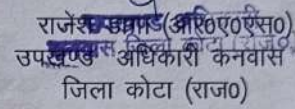 राजेश डागा (आर०ए०एस०)
उपखण्ड अधिकारी कनवास
जिला कोटा (राज०)